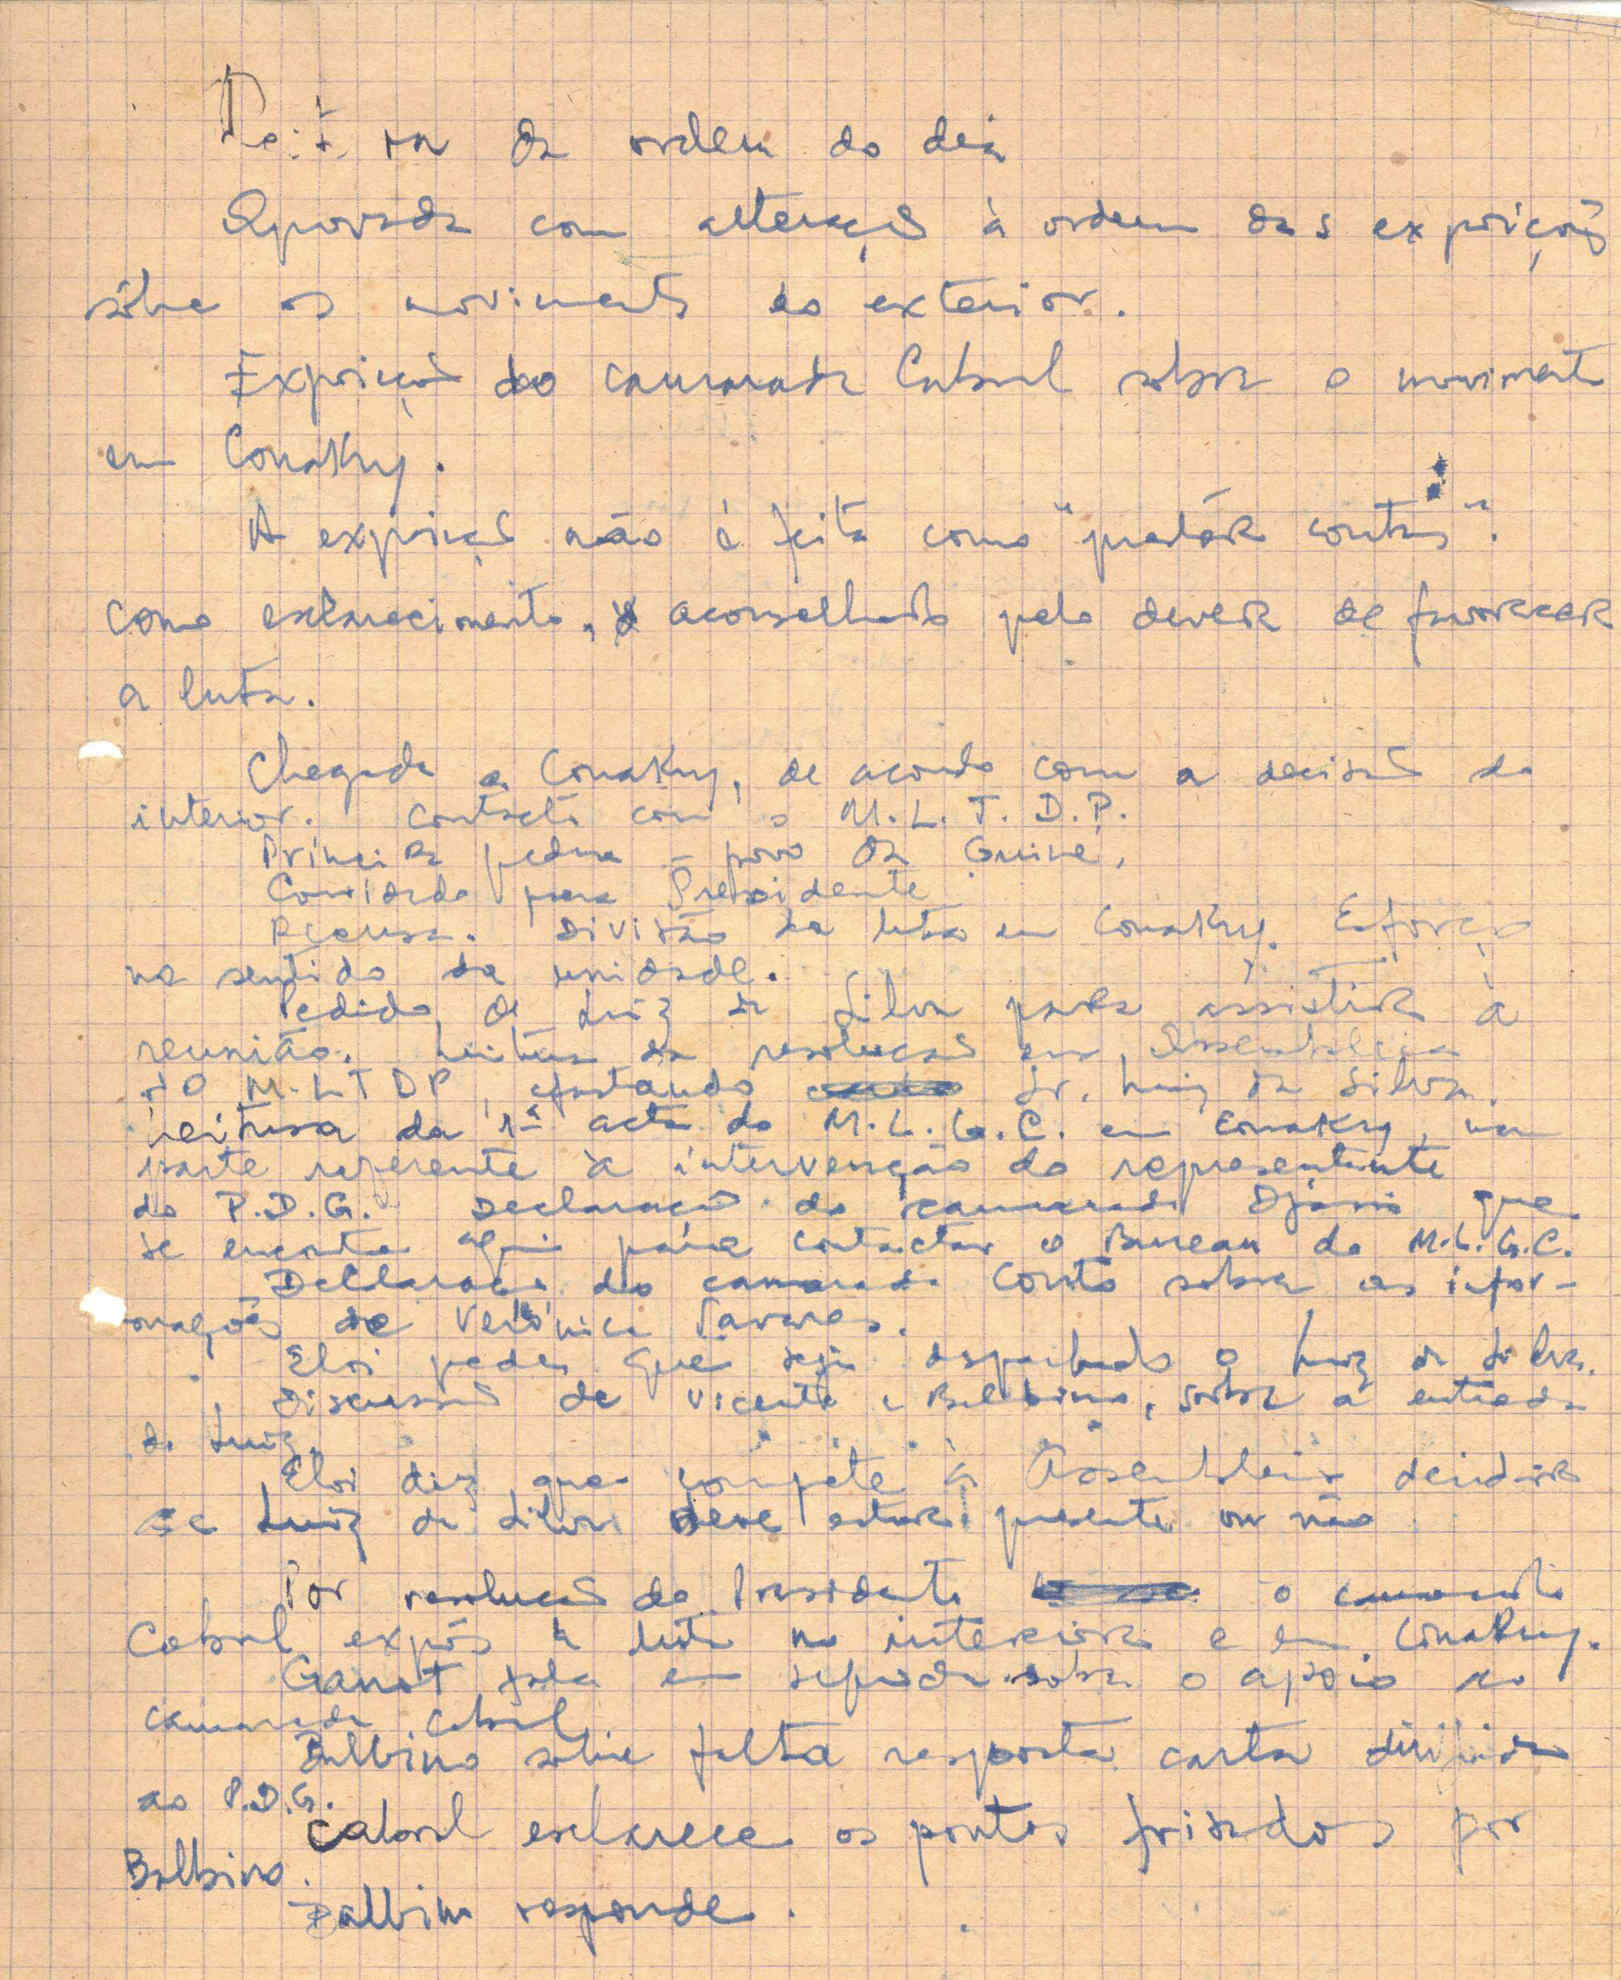 da ordem do dia
Aprovada com alteração à ordem das exposições
sôbre os movimentos do exterior.
Exposição do camarada Cabral sobre o movimento
em Conakry.
A exposição não é feita como "prestar contas".
Como esclarecimento, aconselhado pelo dever de favorecer
a luta.
Chegada a Conakry, de acordo com a decisão do
interior. Contacto com o M.L.T.D.P.
Primeira pedra – povo da Guiné.
Convidado para Presidente
Recusa. Divisão da luta em Conakry. Esforços
no sentido da unidade.
Pedido de Luiz da Silva para assistir à
reunião. Leitura da resolução em Assembleia
do M.L.T.D.P. afastando Sr. Luiz da Silva.
Leitura da 1ª acta do M.L.G.C. em Conakry, na
parte referente à intervenção do representante
do P.D.G. Declaração do camarada Djassi que
se encontra aqui para contactar o Bureau do M.L.G.C.
Declaração do camarada sobre as infor-
mações de Verónica Tavares.
Eloi pede que seja o Luiz da Silva.
Discussão de Vicente e Balbino, sobre a entrada
de Luiz.
Eloi diz que compete à Assembleia decidir
se Luiz da Silva deve estar presente ou não
Por resolução do Presidente o camarada
Cabral expôs a luta no interior e em Conakry.
fala em seguida sobre o apoio ao
camarada Cabral.
Balbino sobre falta resposta carta dirigida
ao P.D.G.
Cabral esclarece os pontos frisados por
Balbino.
Balbino responde.